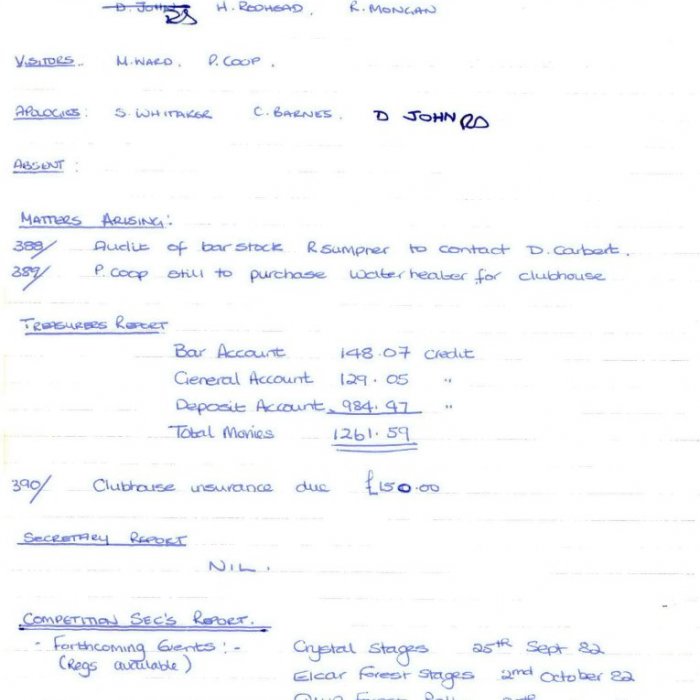 D. JOHN H. REDHEAD. R. MONGAN
VISITORS. M. WARD. P. COOP.
APOLOGIES: S. WHITAKER C. BARNES. D JOHN
ABSENT:
MATTERS ARISING:
388/ Audit of bar stock R Sumpner to contact D. Corbert.
389/ P. Coop still to purchase water heater for clubhouse
TREASURERS REPORT
Bar Account 148.07 credit
General Account 129.05 "
Deposit Account 984.47 "
Total Monies 1261.59
390/ Clubhouse insurance due £150.00
SECRETARY REPORT
NIL.
COMPETITION SEC'S REPORT.
- Forthcoming Events:- Crystal Stages 25th Sept 82
(Regs available) Elcar Forest Stages 2nd October 82